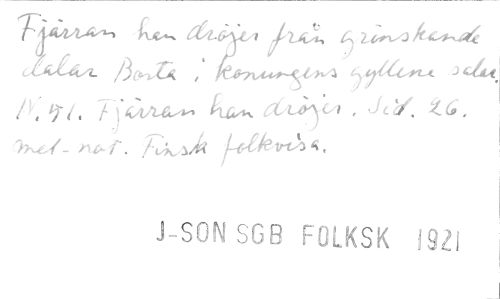 Fjärran han dröjer från grönskande
dalar Borta i konungens gyllene salar.
N. 51. Fjärran han dröjer. Sid. 26.
mel-not. Finsk folkvisa.
J-SON SGB FOLKSK 1921